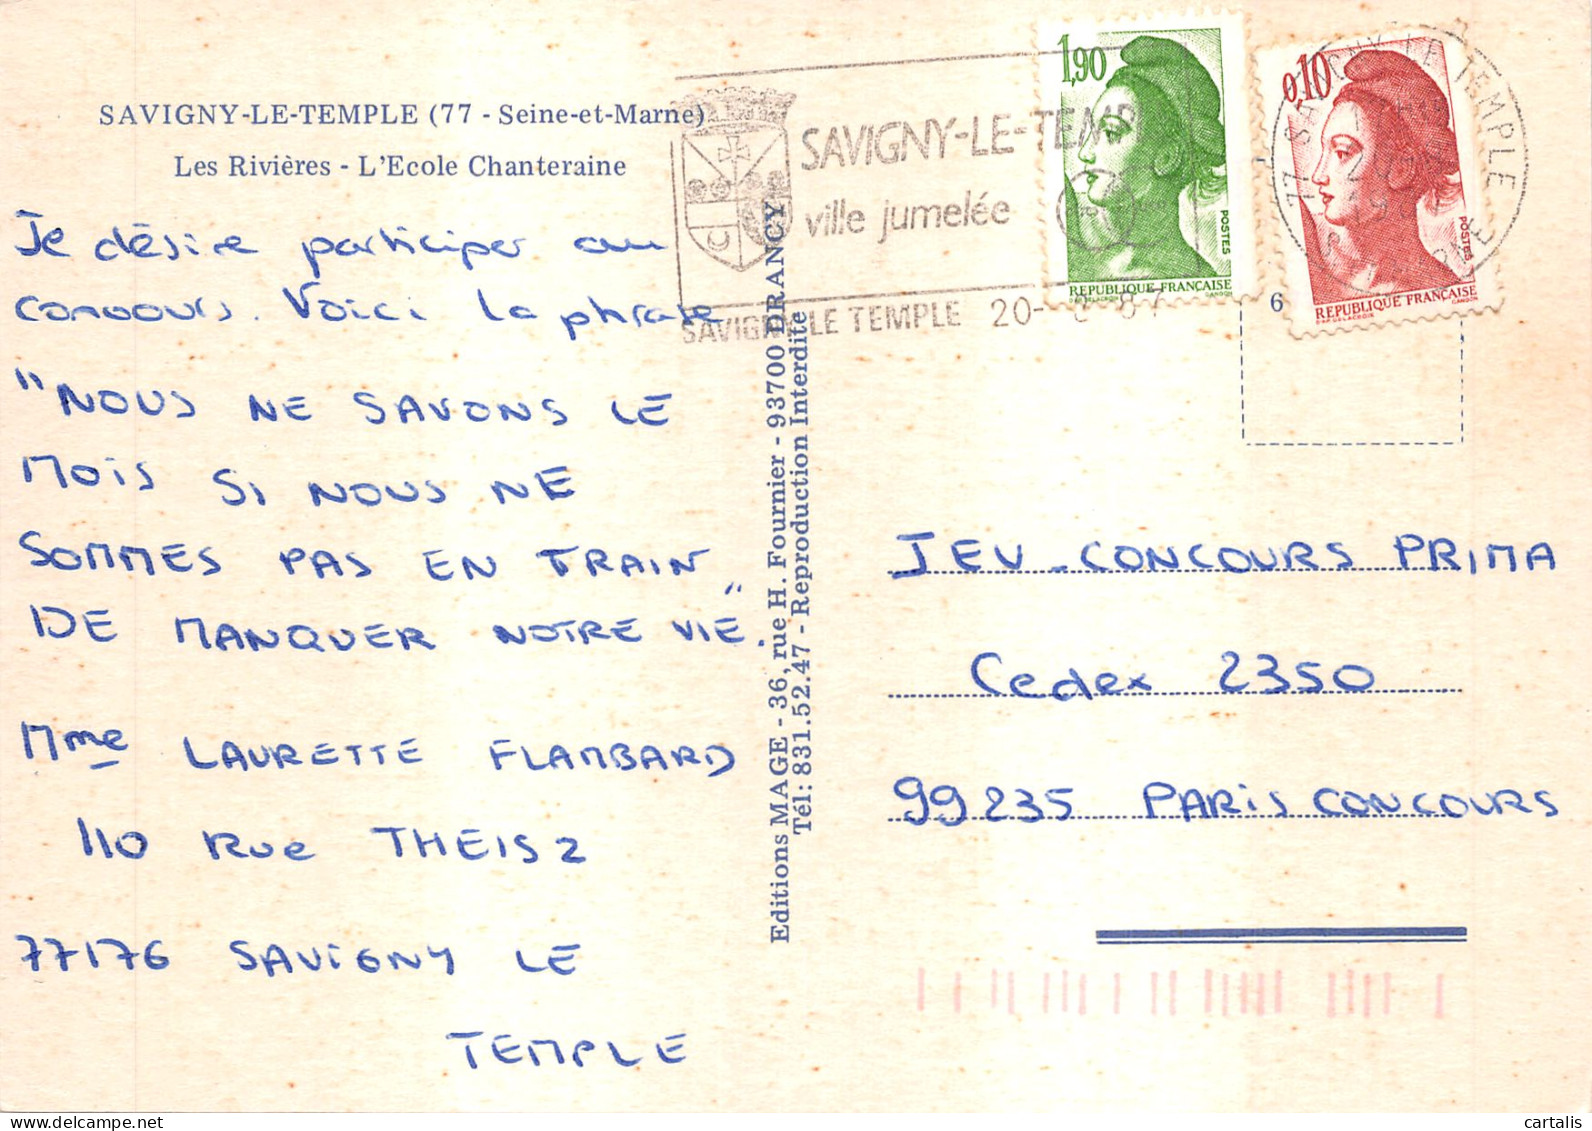 SAVIGNY-LE-TEMPLE (77 - Seine-et-Marne)
Les Rivières - L'Ecole Chanteraine
Je désire participer au
concours. Voici la phrase
"NOUS NE SAVONS LE
MOIS SI NOUS NE
SOMMES PAS EN TRAIN
DE MANQUER NOTRE VIE".
Mme LAURETTE FLAMBARD
110 RUE THEIS 2
77176 SAVIGNY LE
TEMPLE
Editions MAGE - 36, rue H. Fournier - 93700 DRANCY
Tél: 831.52.47 - Reproduction Interdite
SAVIGNY-LE-TEMP
ville jumelée
SAVIGNY LE TEMPLE 20- 87
1,90
POSTES
REPUBLIQUE FRANÇAISE
DAP. DELACROIX GANDON
0,10
POSTES
REPUBLIQUE FRANÇAISE
DAP. DELACROIX GANDON
77 SAVIGNY LE TEMPLE
6
JEU-CONCOURS PRIMA
Cedex 2350
99235 PARIS CONCOURS
cartalis